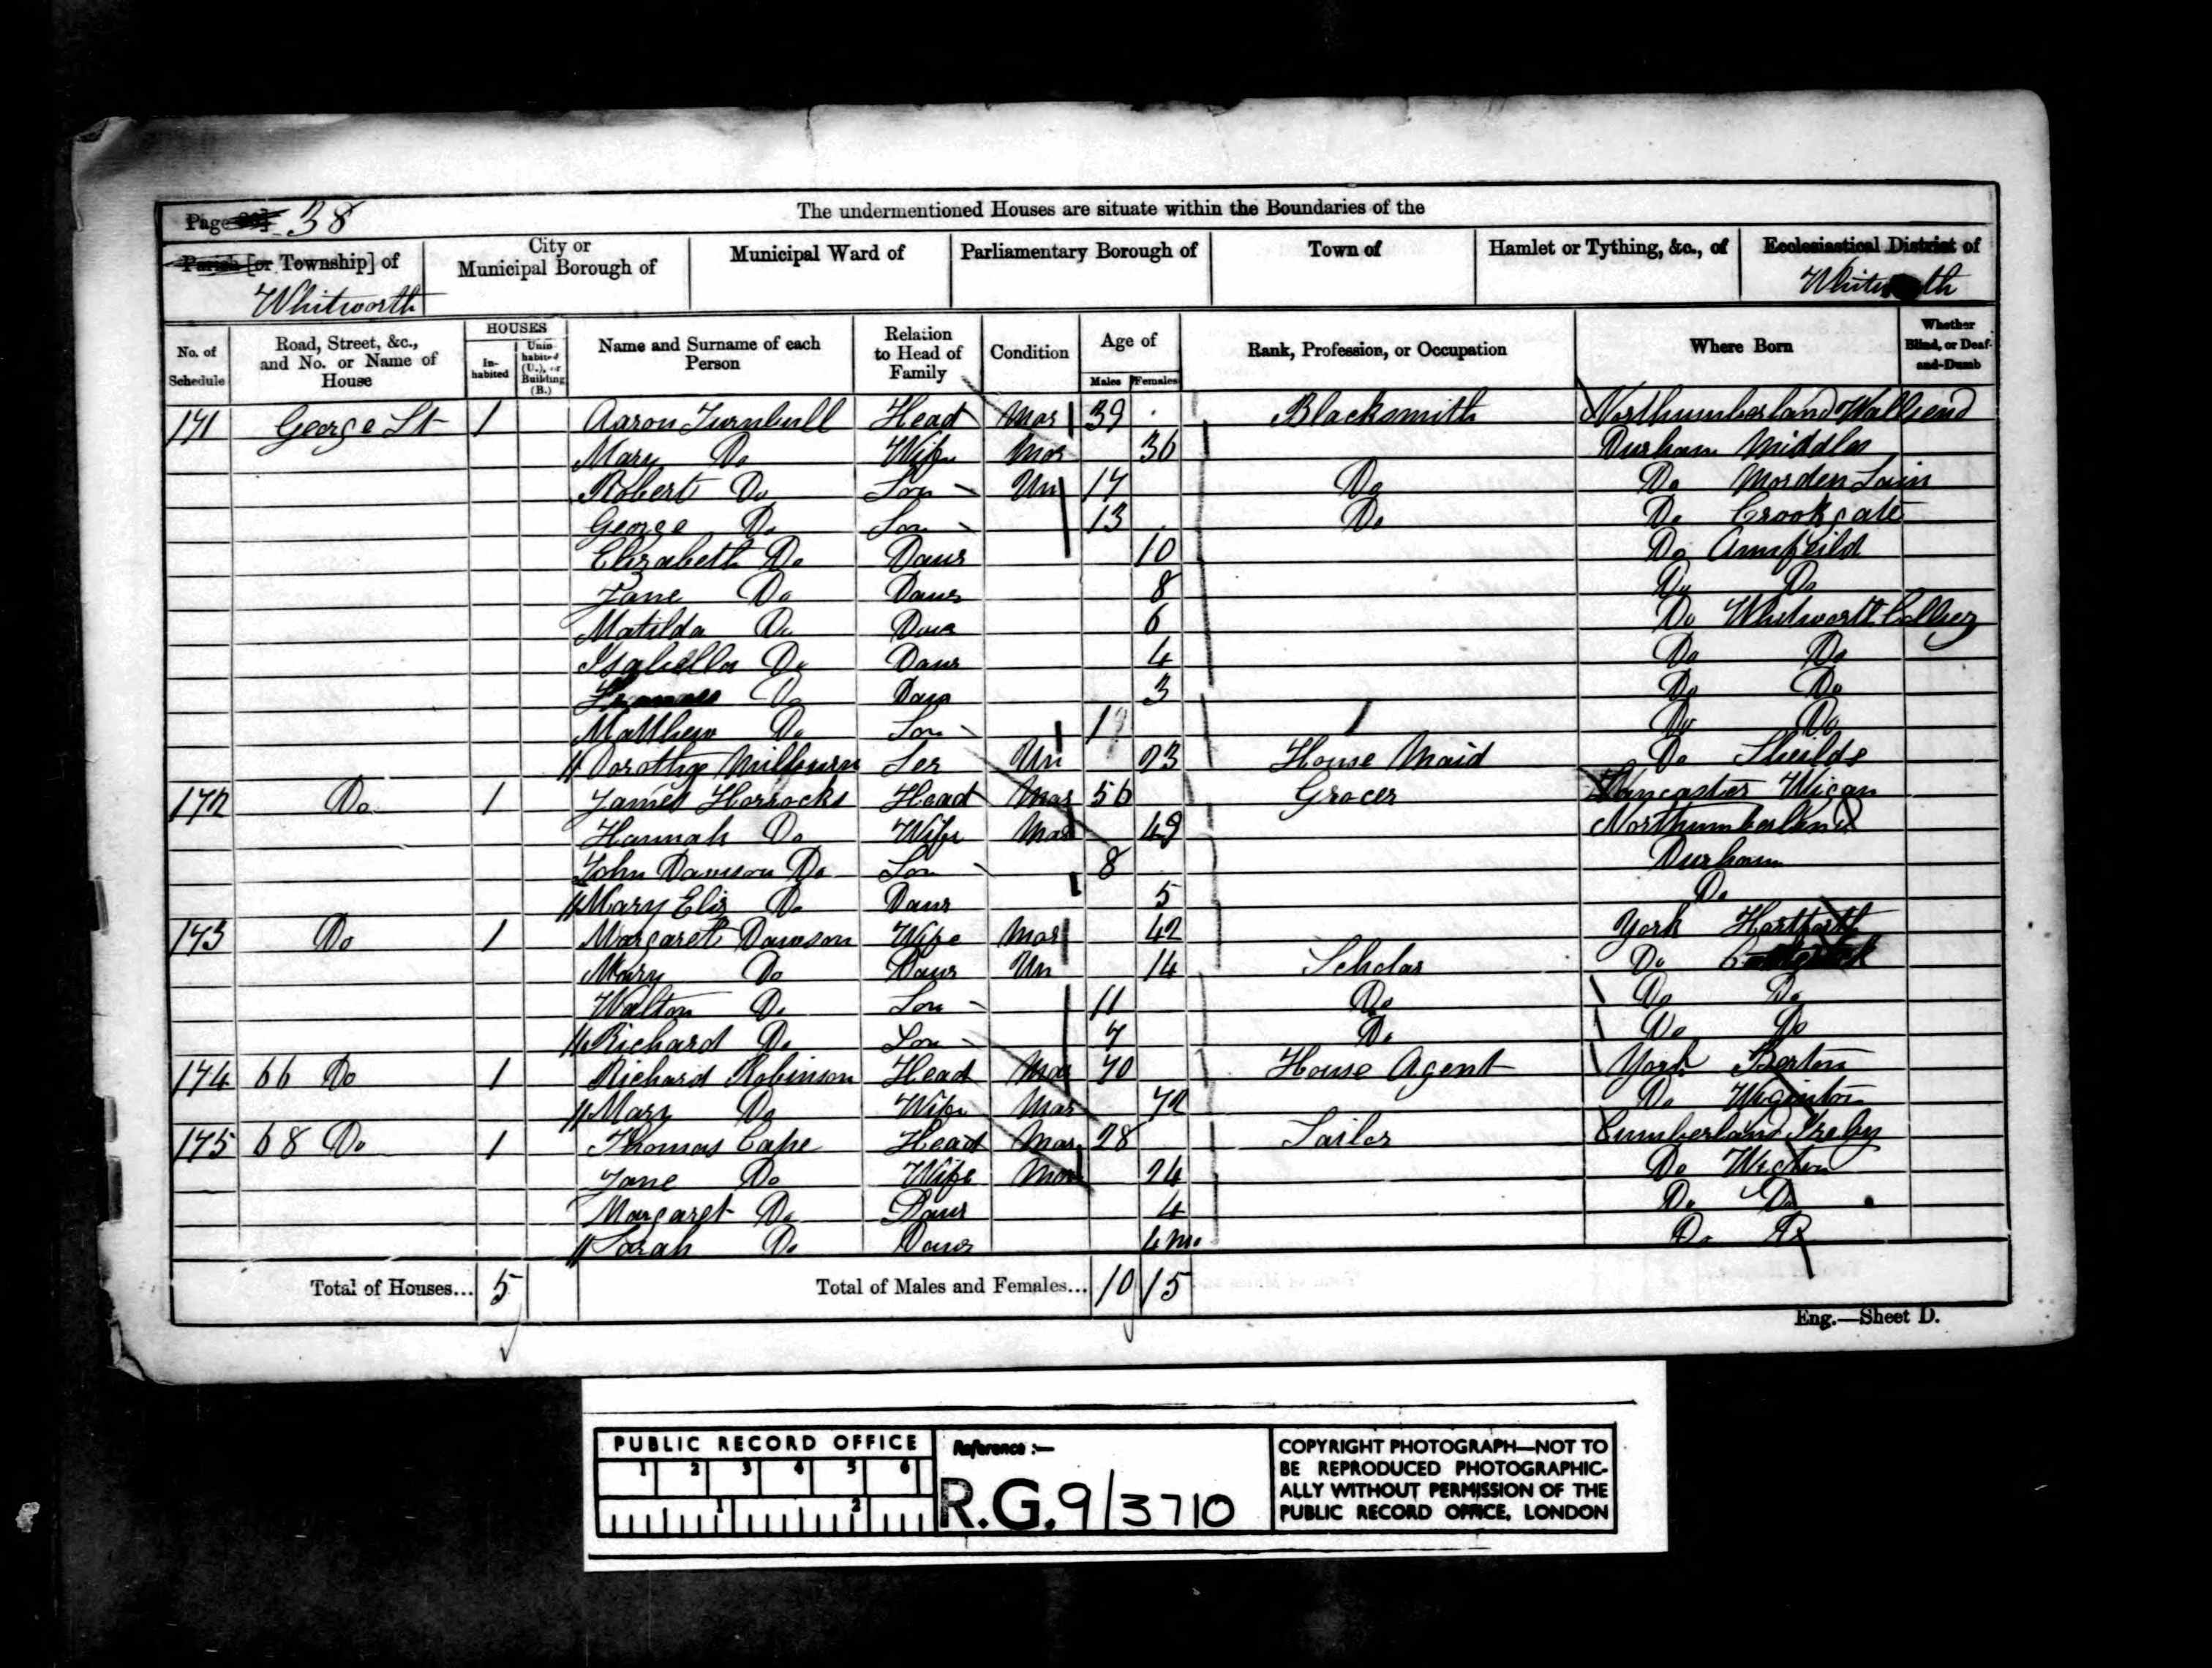 Page 29] 38
The undermentioned Houses are situate within the Boundaries of the
Parish [or Township] of Whitworth
City or Municipal Borough of
Municipal Ward of
Parliamentary Borough of
Town of
Hamlet or Tything, &c., of
Ecclesiastical District of Whitworth
No. of Schedule
Road, Street, &c., and No. or Name of House
HOUSES
In-habited
Unin-habited (U.), or Building (B.)
Name and Surname of each Person
Relation to Head of Family
Condition
Age of
Males Females
Rank, Profession, or Occupation
Where Born
Whether Blind, or Deaf-and-Dumb
171 George St 1 Aaron Turnbull Head Mar 39 Blacksmith Northumberland Wallsend
Mary Do Wife Mar 36 Durham
Robert Do Son Un 17 Do Do Morden
George Do Son 13 Do Do Crookgate
Elizabeth Do Daur 10 Do Annfeild
Jane Do Daur 8 Do Do
Matilda Do Daur 6 Do Whitworth
Isabella Do Daur 4 Do Do
Do Daur 3 Do Do
Matthew Do Son 1 Do Do
Dorothy Milburn Ser Un 23 House Maid Do Sheilds
172 Do 1 James Horrocks Head Mar 56 Grocer Lancaster Wigan
Hannah Do Wife Mar 49 Northumberland
John Dawson Do Son 8 Durham
Mary Eliz Do Daur 5 Do
173 Do 1 Margaret Dawson Wife Mar 42 York Hartforth
Mary Do Daur Un 14 Scholar Do
Walton Do Son 11 Do Do Do
Richard Do Son 7 Do Do Do
174 66 Do 1 Richard Robinson Head Mar 70 House Agent York
Mary Do Wife Mar 72 Do
175 68 Do 1 Thomas Cape Head Mar 28 Cumberland Ireby
Jane Do Wife Mar 24 Do Wigton
Margaret Do Daur 4 Do Do
Sarah Do Daur 4 m. Do Do
Total of Houses... 5
Total of Males and Females... 10 15
Eng.—Sheet D.
PUBLIC RECORD OFFICE
1 2 3 4 5 6
1 2
Reference :—
R.G. 9/3710
COPYRIGHT PHOTOGRAPH—NOT TO
BE REPRODUCED PHOTOGRAPHIC-
ALLY WITHOUT PERMISSION OF THE
PUBLIC RECORD OFFICE, LONDON